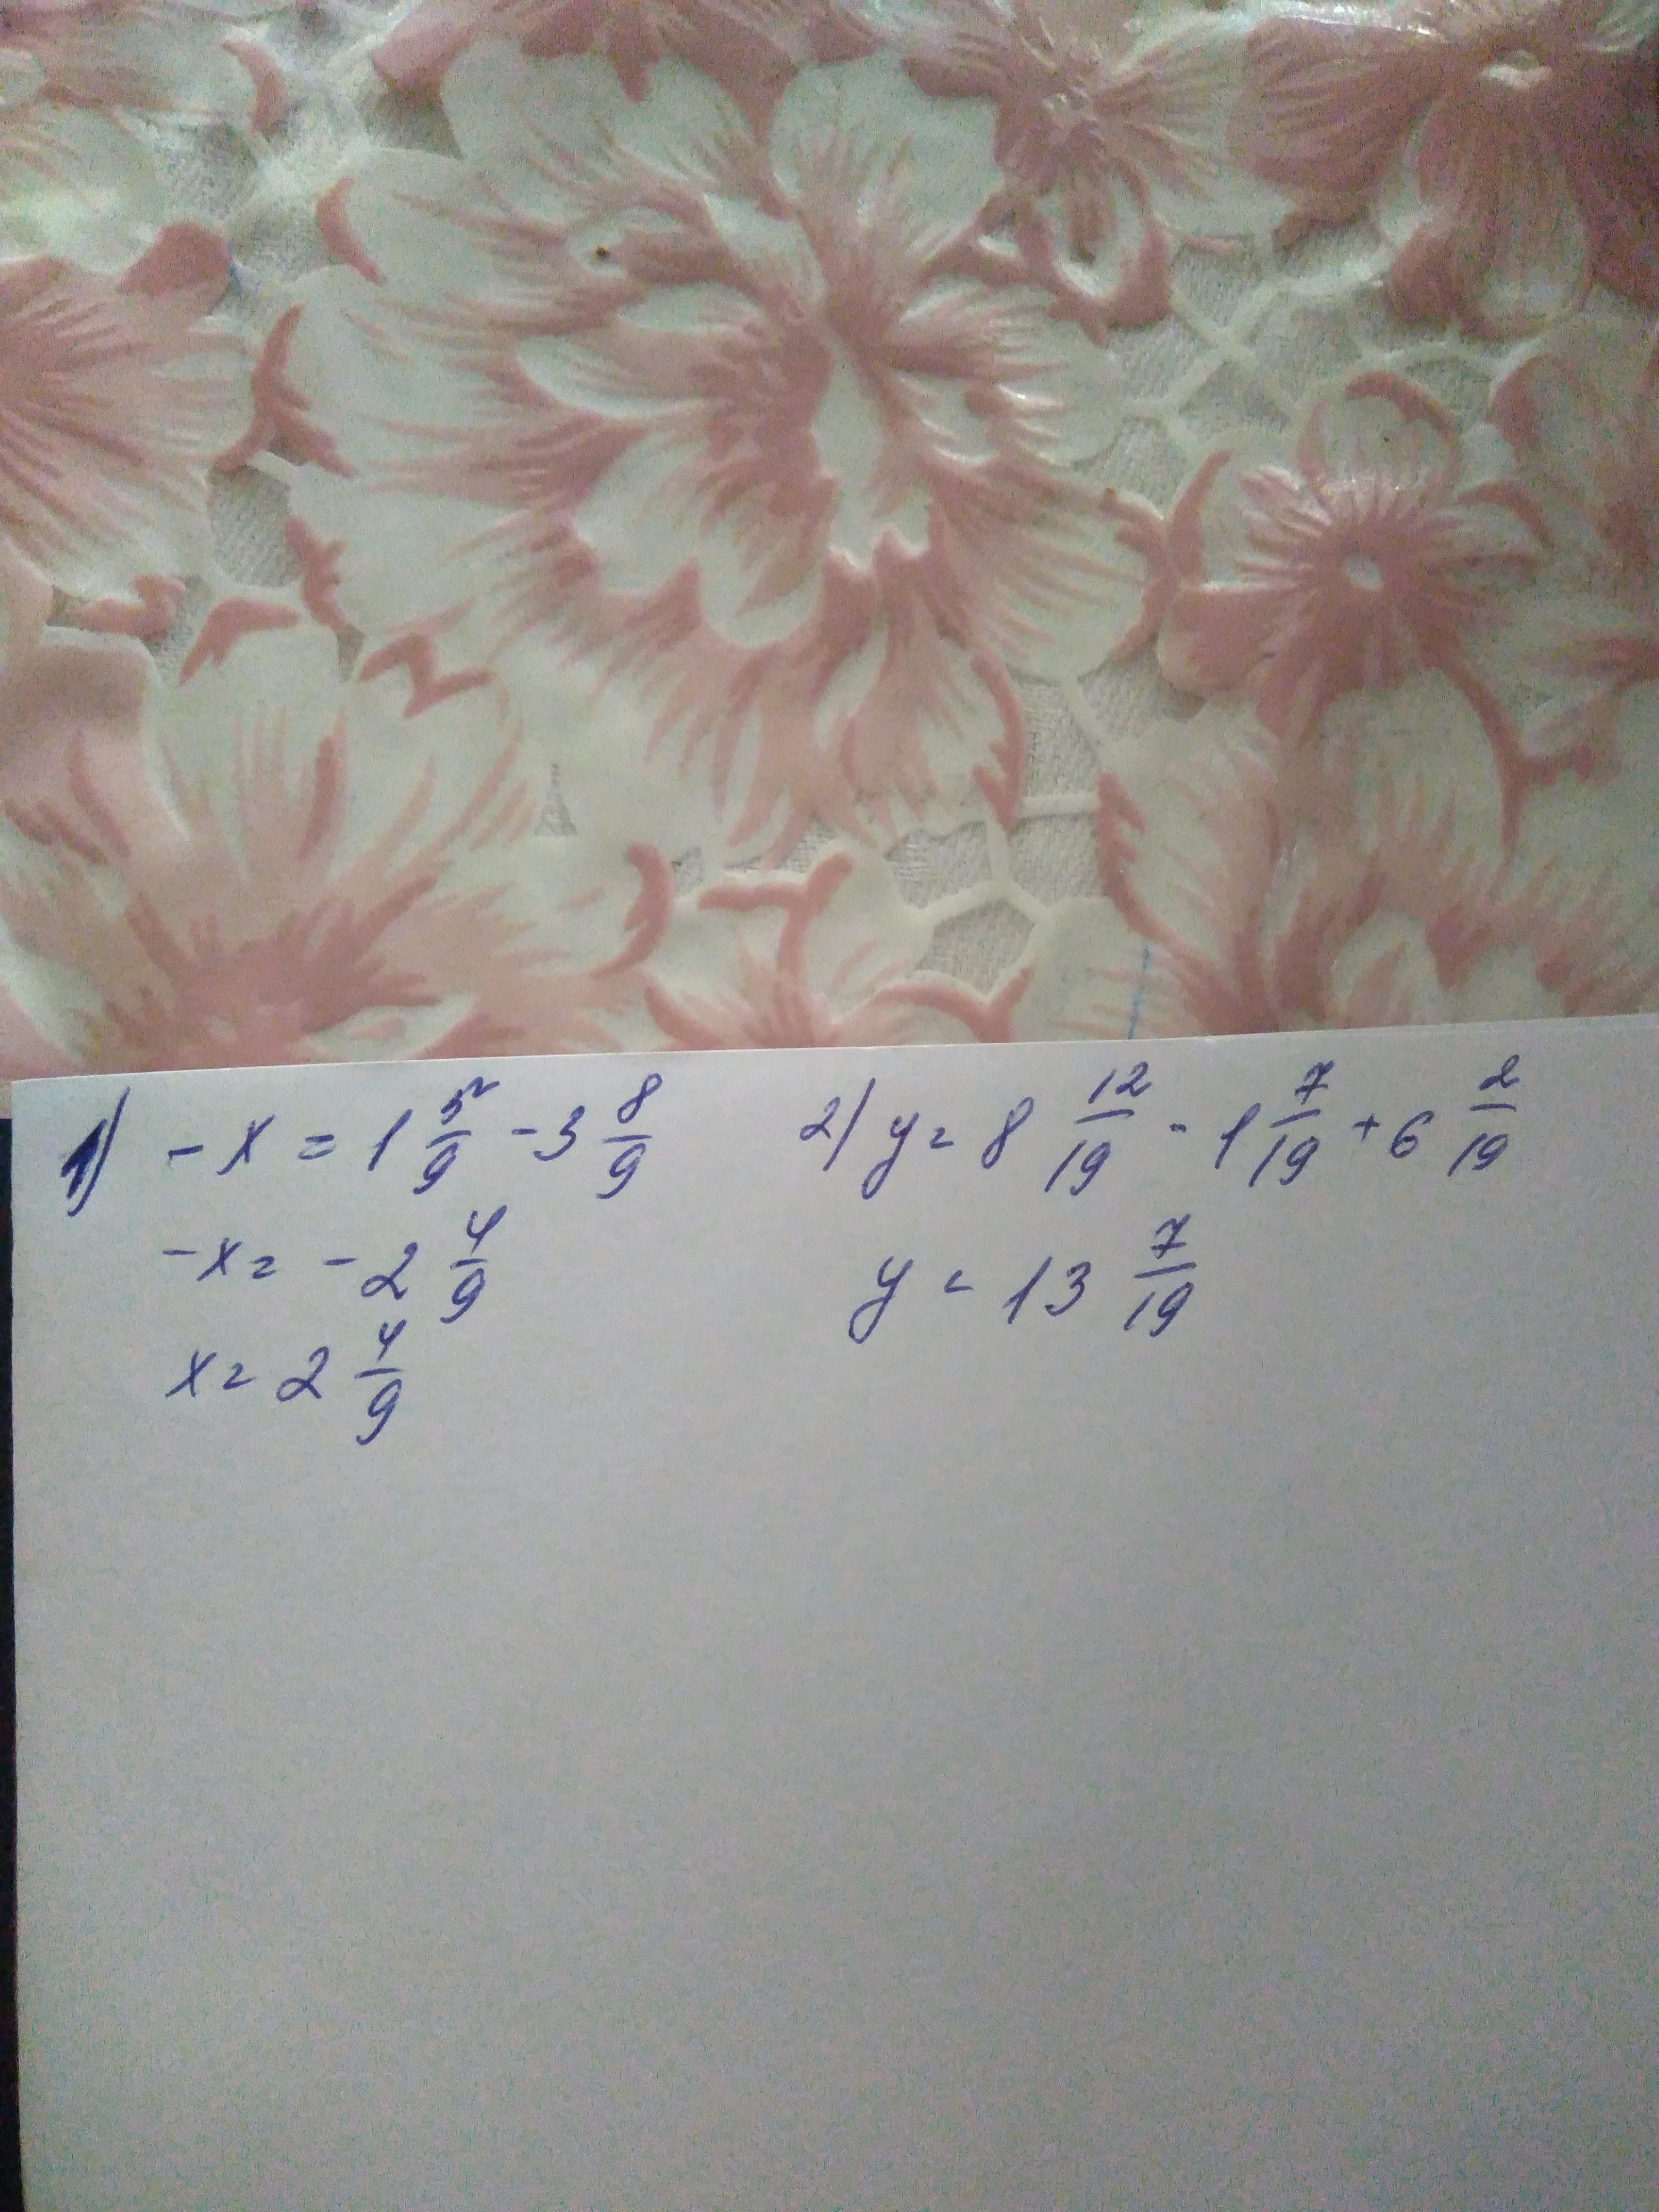 1) -x = 1 5/9 - 3 8/9
-x = - 2 4/9
x = 2 4/9
2) y = 8 12/19 - 1 7/19 + 6 2/19
y = 13 7/19